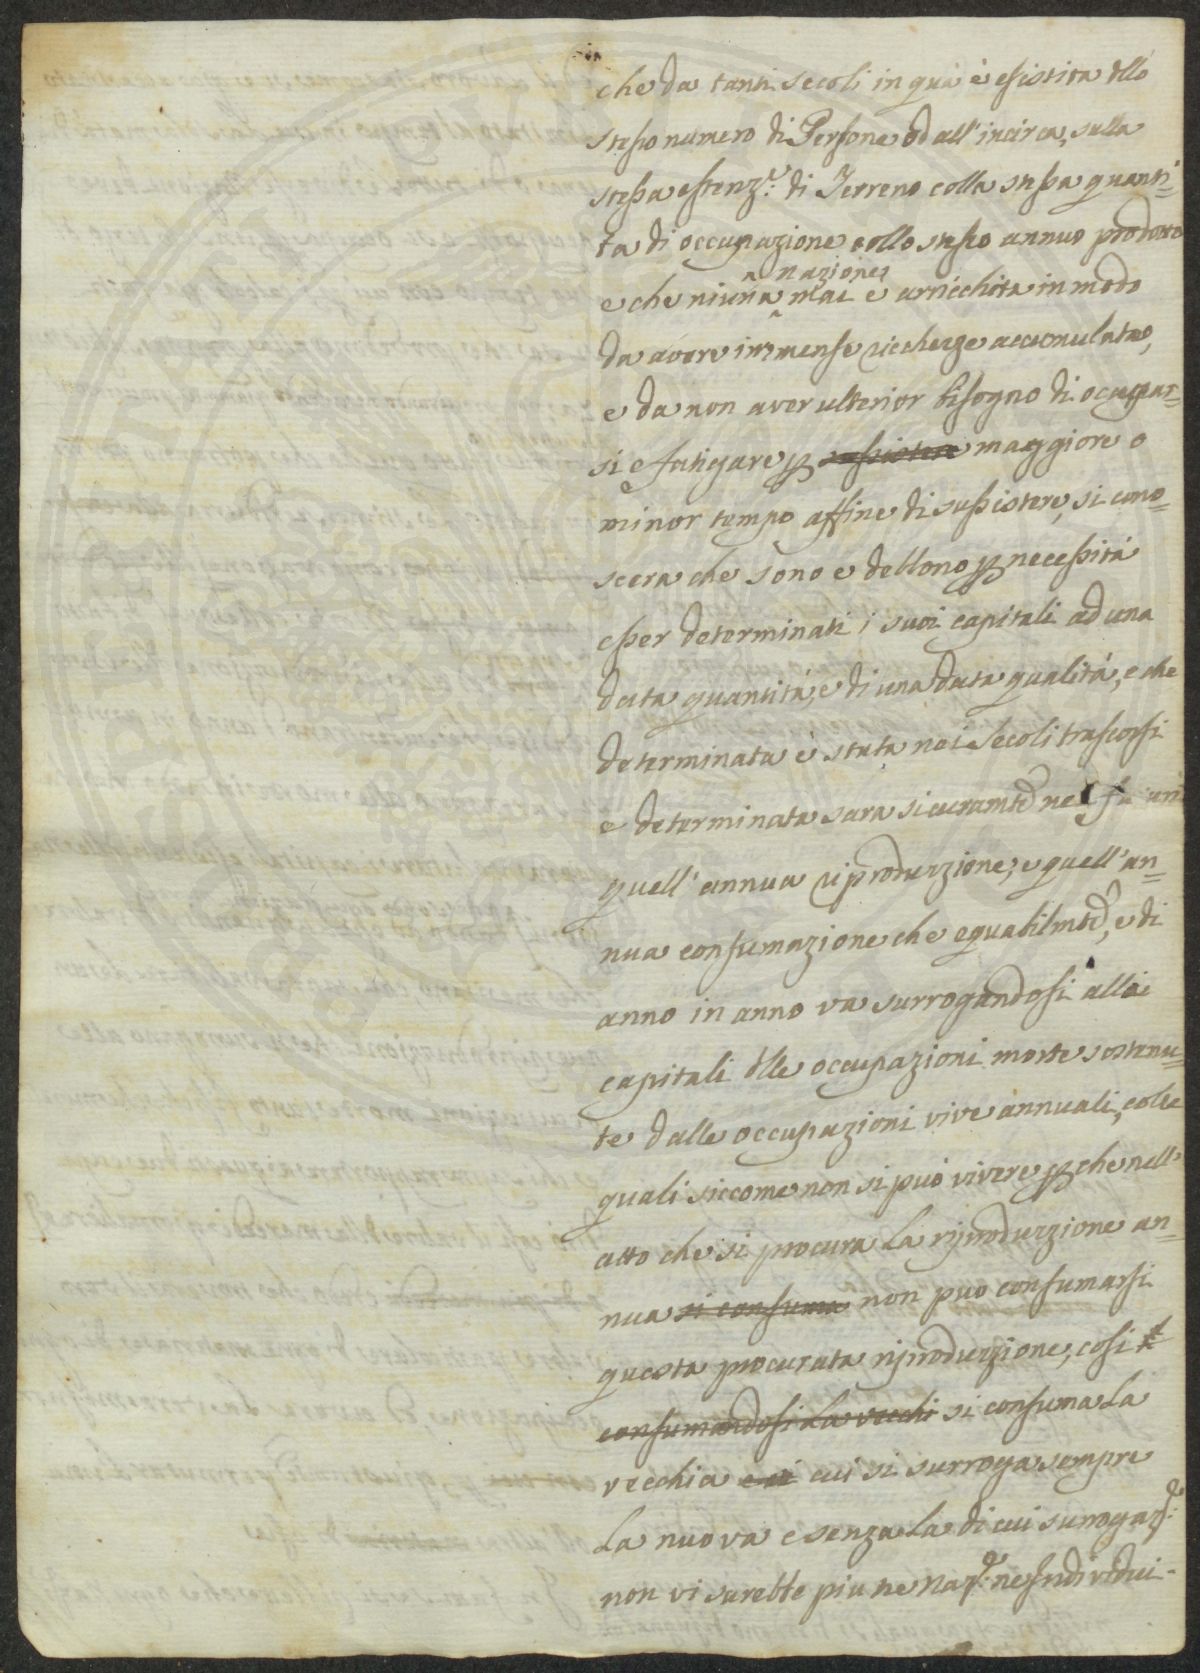 che da tanti secoli in quà è esistita dllo
stesso numero di Persone od all'incirca, sulla
stessa estenze: di Terreno colla stessa quanti=
ta di occupazione collo stesso annuo prodotto
nazione
e che niuna mai è arricchita in modo
da avere immense ricchezze accumulate,
e da non aver ulterior bisogno di occupar=
si e fatigare p sussistere maggiore o
minor tempo affine di sussistere, si cono=
scera che sono e debbono p necessità
esser determinati i suoi capitali ad una
data quantità, e di una data qualità, e che
determinata è stata nei Secoli trascorsi
e determinata sara sicuramte nei futuri
quell'annua riproduzione, e quell'an=
nua consumazione che equabilmte, e di
anno in anno va surrogandosi alli
capitali dlle occupazioni morte sostenu=
te dalle occupazioni vive annuali, colle
quali siccome non si può vivere p che nell'
atto che si procura la riproduzione an=
nua si consuma non puo consumarsi
questa procurata riproduzione, cosi
consumandosi la vecchi si consuma la
vecchia e si cui si surroga sempre
la nuova e senza la di cui surrogaze:
non vi sarebbe piu ne Naze: ne Individui.